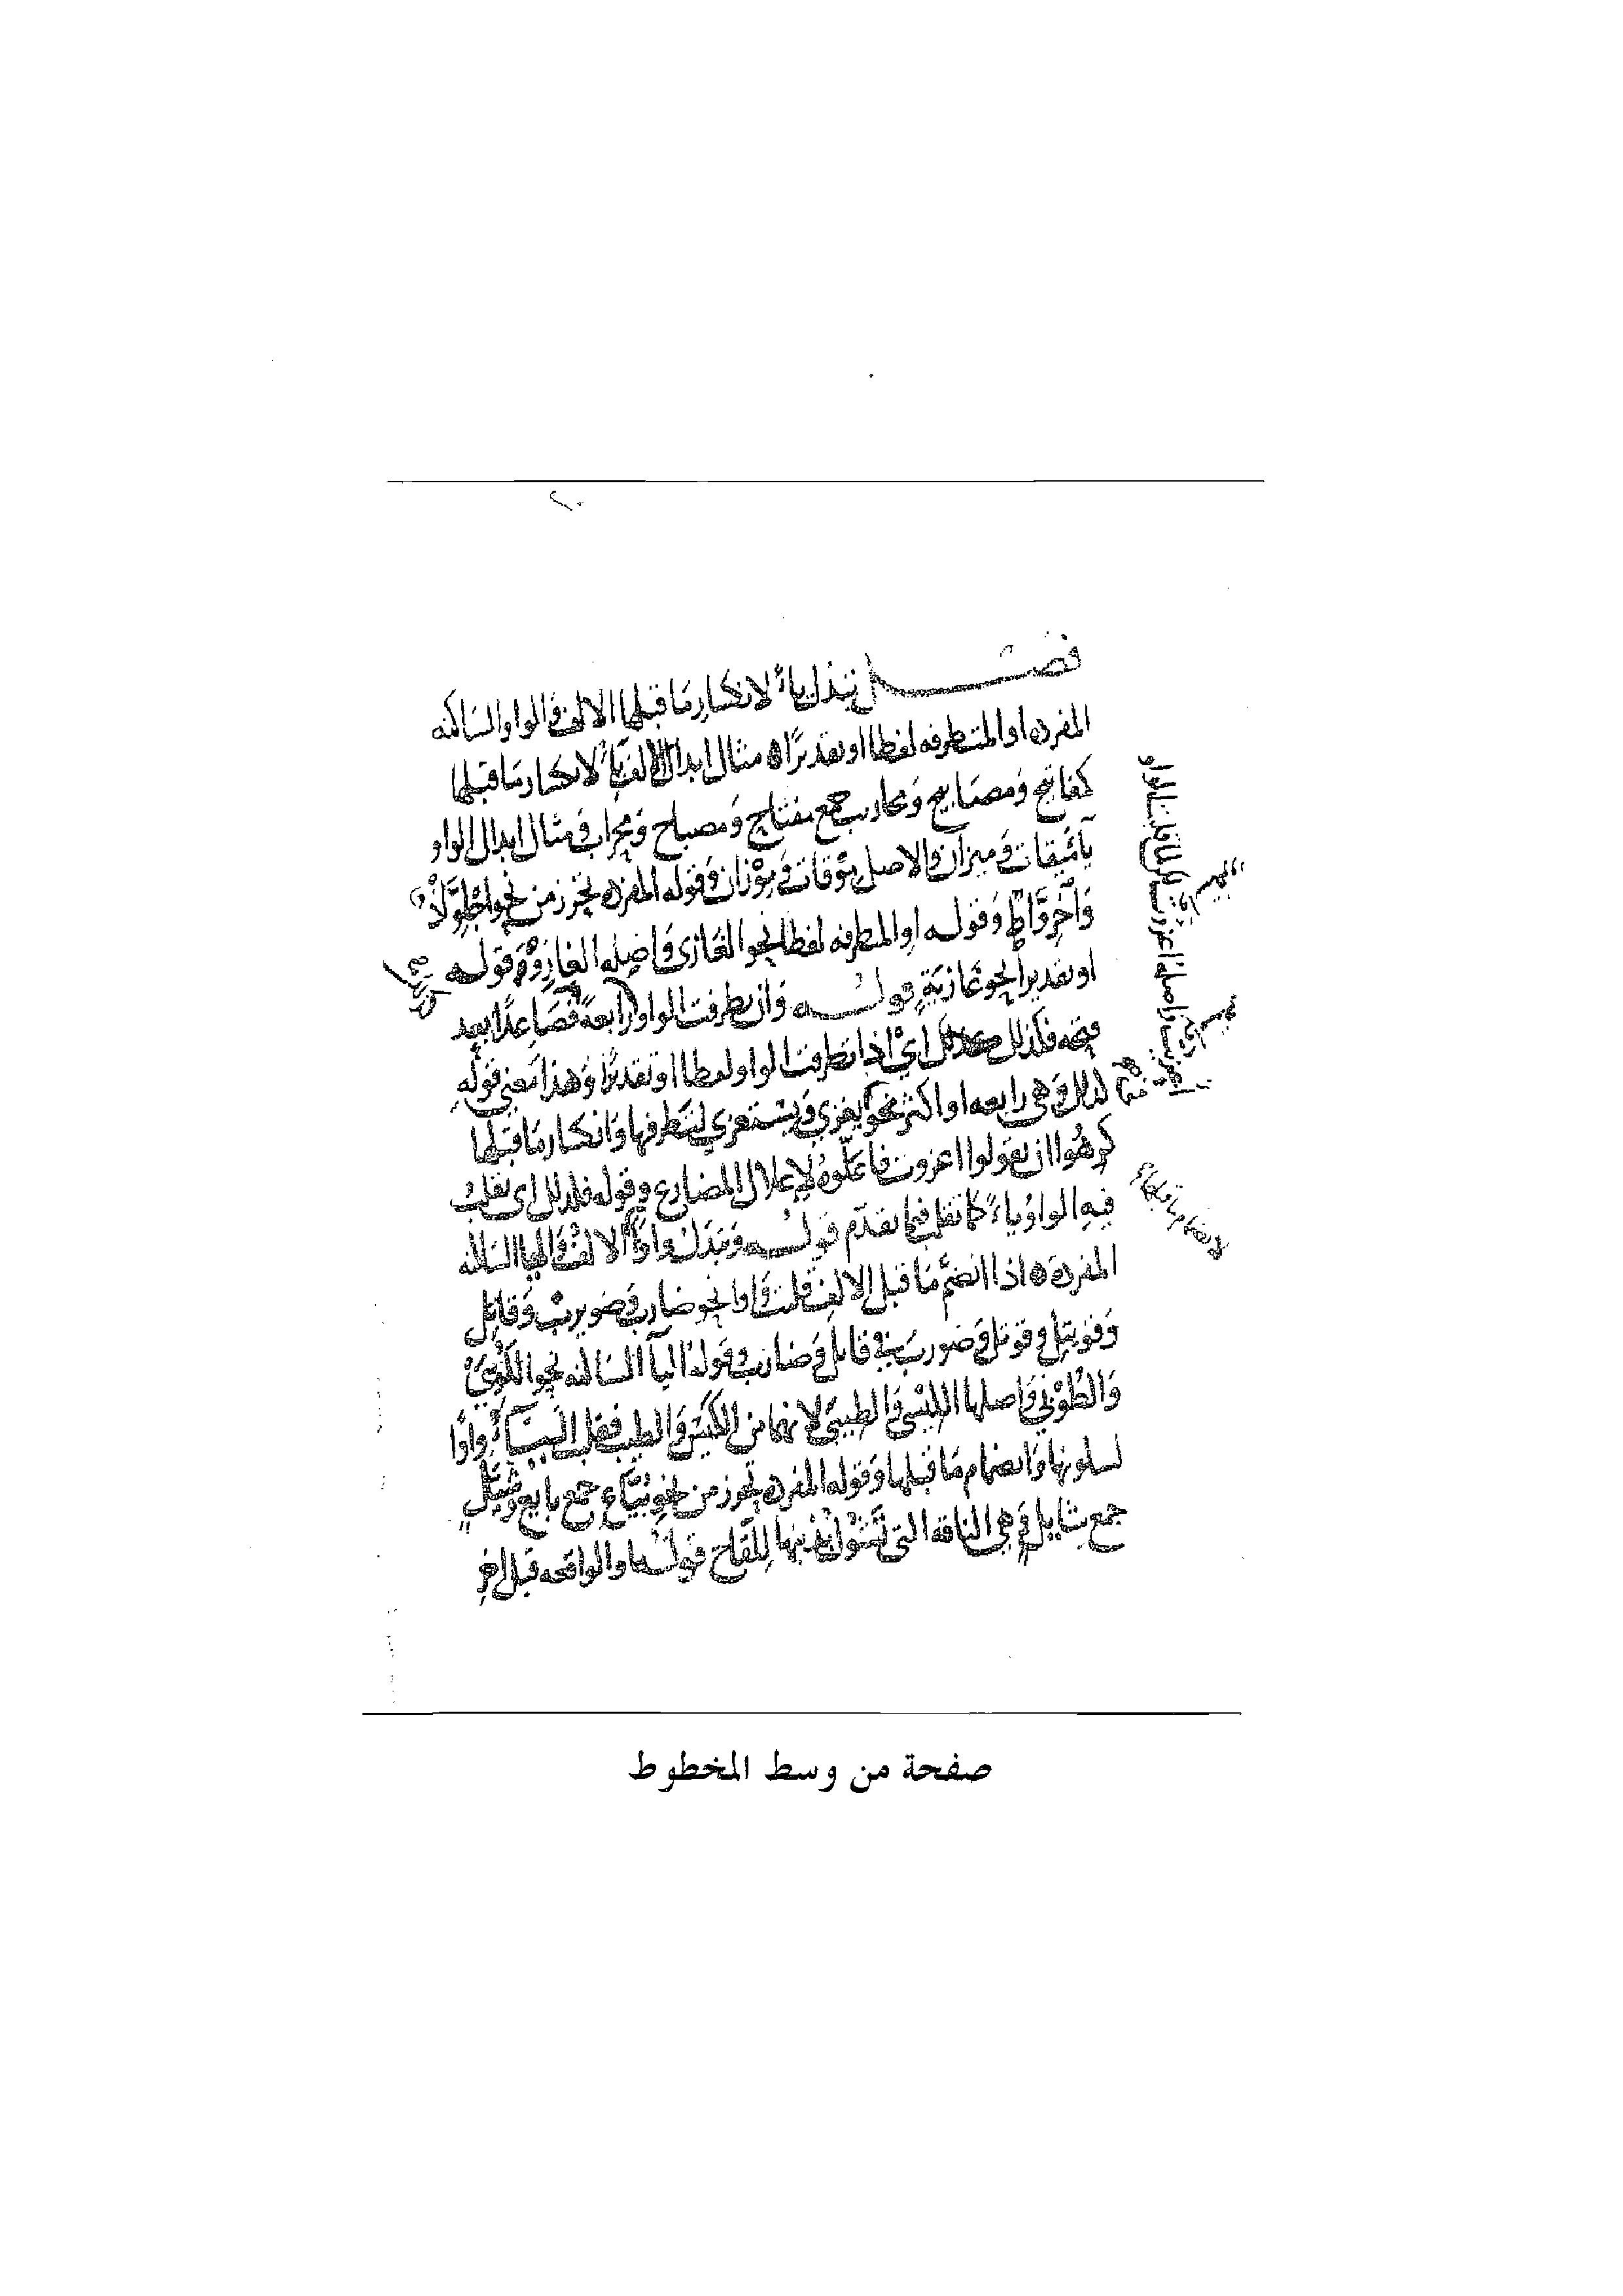 فصل تبدل ياء لانكسار ما قبلها الالف والواو الساكنه
المفرده او المتطرفه لفظا او تقديرا ه مثال ابدال الالف ياء لانكسار ما قبلها
كمفاتيح ومصابيح ومحاريب جمع مفتاح ومصباح ومحراب ومثال ابدال الواو
ياء ميقات وميزان والاصل موقات وموزان وقوله المفرده تحرز من نحو اجلواذ
واخرواط وقوله او المتطرفه لفظا نحو الغازى واصله الغازو وقوله
او تقديرا نحو غازية قوله وان تطرفت الواو رابعة فصاعدا بعد
فتحه فكذلك اي اذا تطرفت الواو لفظا او تقديرا وهذا معنى قوله
كذلك وهى رابعه او اكثر نحو يغزي ويستغزي لتطرفها وانكسار ما قبلها
كرهوا ان يقولوا اغزوت فاعلوه لاعلال المضارع وقوله فكذلك اى تقلب
فيه الواو ياء كما تقلب فيما تقدم قوله وتبدل واوا الالف واليا الساكنه
المفرده ه اذا انضم ما قبل الالف قلبت واوا نحو ضارب وضويرب وقاتل
وقويتل وقوتل وضورب في قاتل وضارب وقوله اليا الساكنه نحو الكوسى
والطوبى واصلها الكيسى والطيبى لانهما من الكيس والطيب فقلبت الياء واوا
لسكونها وانضمام ما قبلها وقوله المفرده تحرز من نحو بياع جمع بايع وشيل
جمع شايل وهى الناقه التى تشول بذنبها للقاح قوله او الواقعه قبل اخر
لانضمام ما قبلها
صفحة من وسط المخطوط